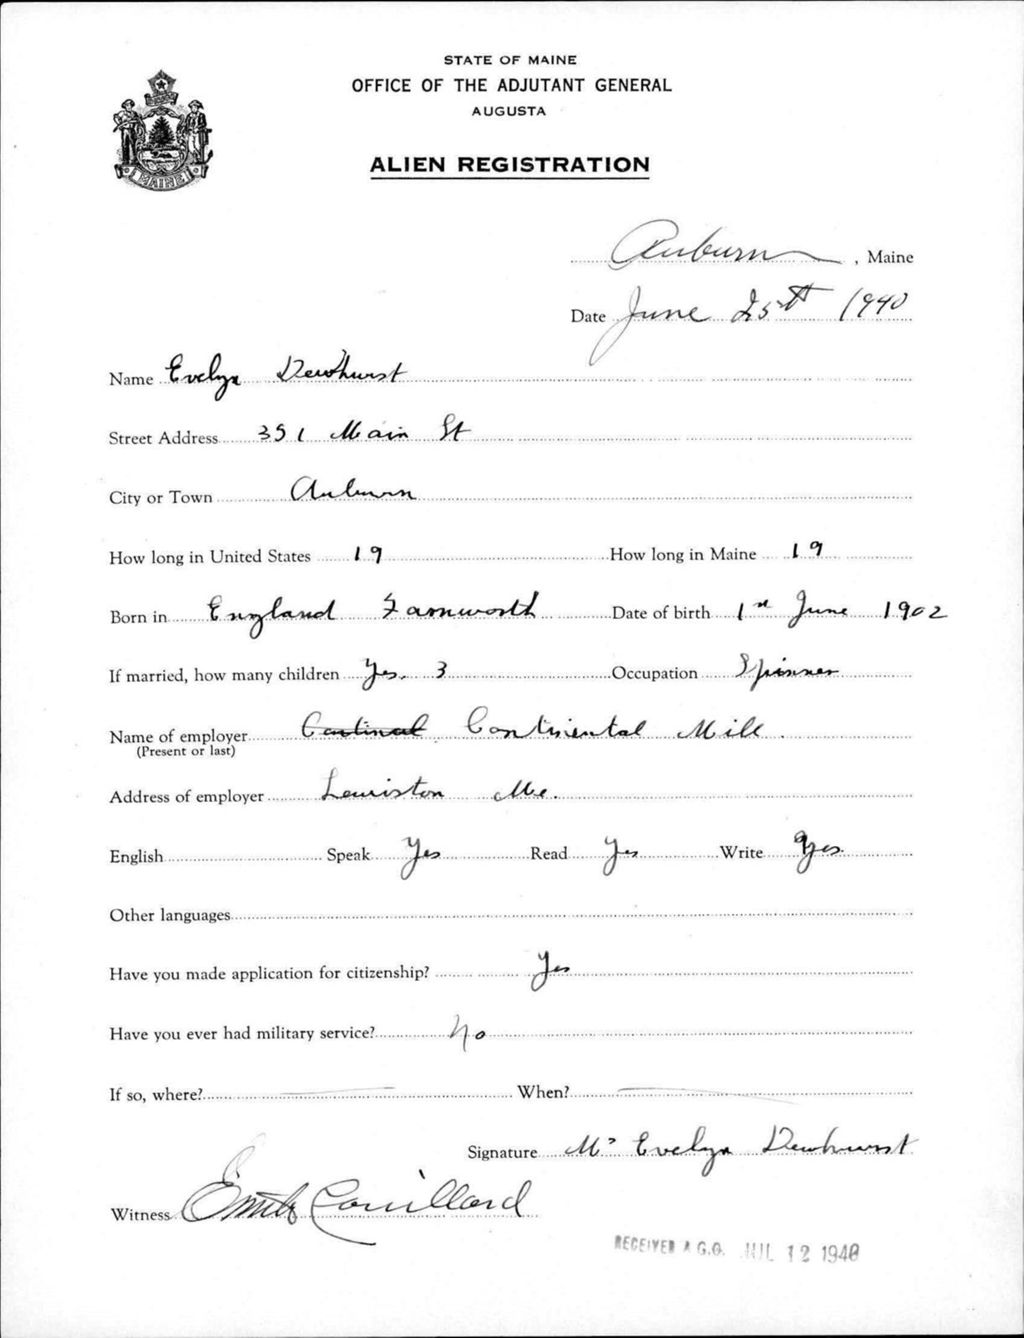 STATE OF MAINE
OFFICE OF THE ADJUTANT GENERAL
AUGUSTA
ALIEN REGISTRATION
MAINE
Auburn, Maine
Date June 25th 1940
Name Evelyn Dewhurst
Street Address 351 Main St
City or Town Auburn
How long in United States 19 How long in Maine 19
Born in England Farnworth Date of birth 1st June 1902
If married, how many children Yes. 3 Occupation Spinner
Name of employer Continental Mill.
(Present or last)
Address of employer Lewiston Me.
English Speak Yes Read Yes Write Yes.
Other languages
Have you made application for citizenship? Yes
Have you ever had military service? No
If so, where? When?
Signature Mrs Evelyn Dewhurst
Witness Couillard
RECEIVED A.G.O. JUL 12 1940